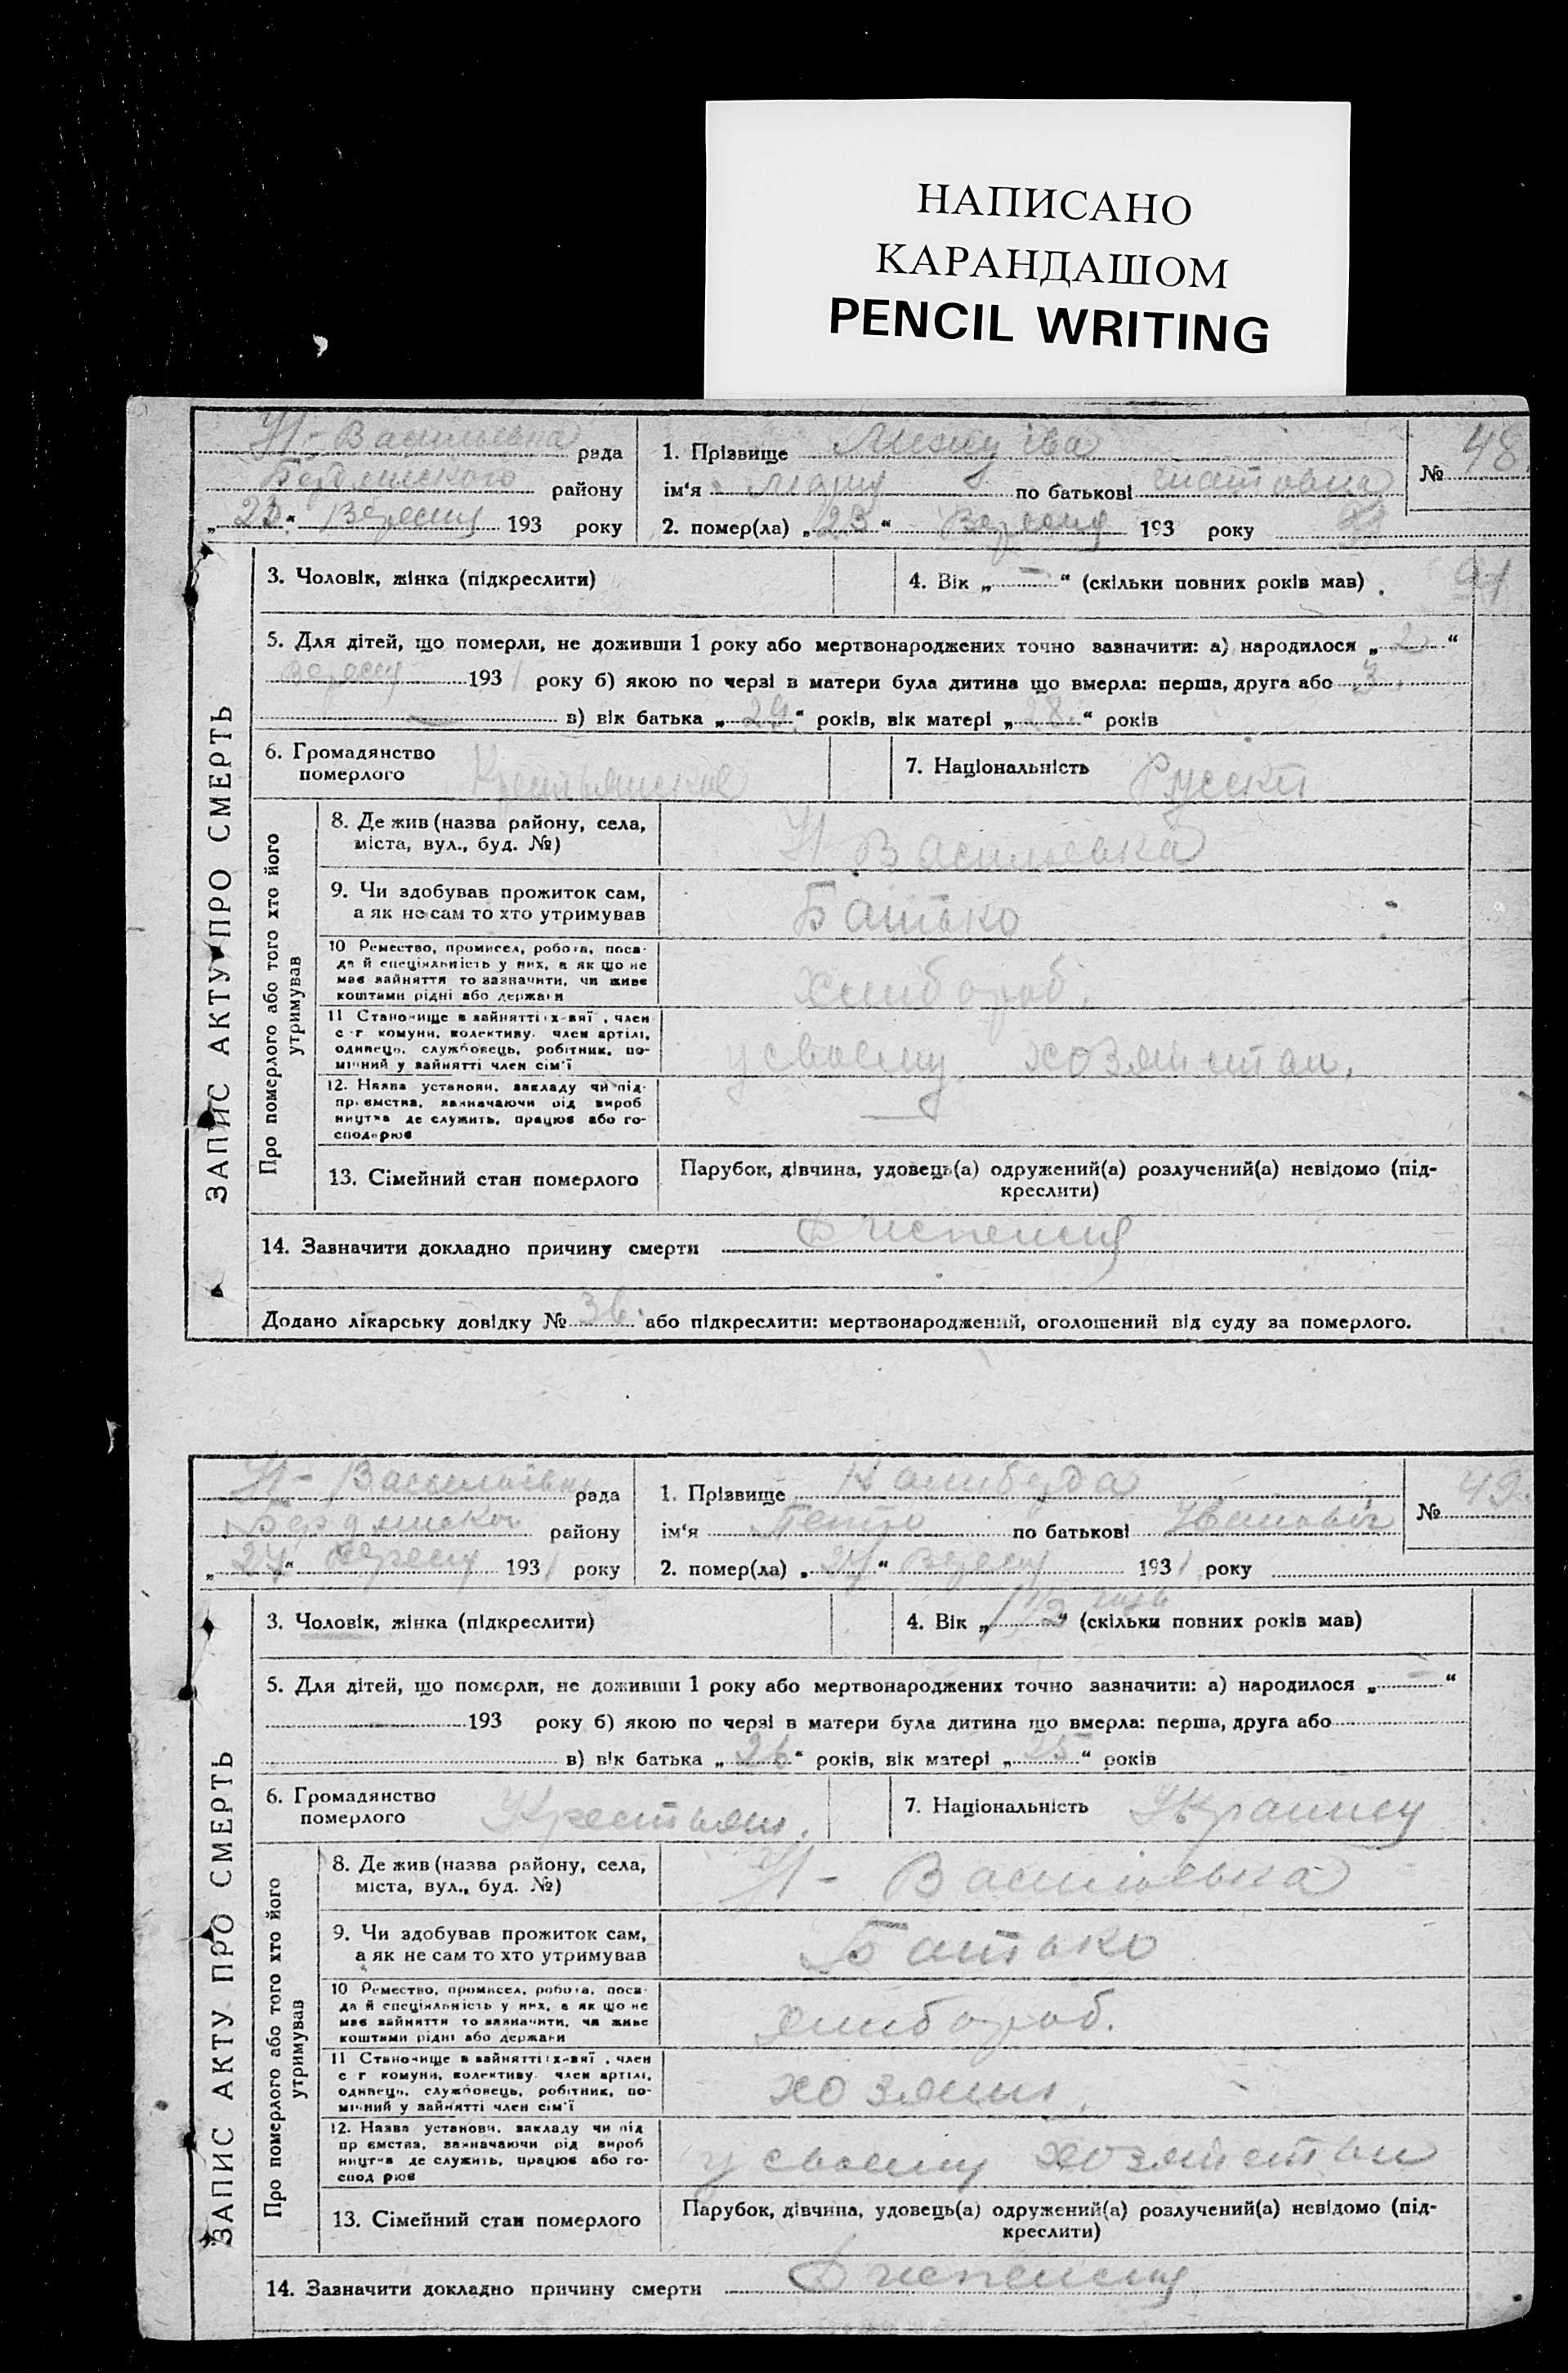 НАПИСАНО
КАРАНДАШОМ
PENCIL WRITING
Н-Васильевка рада
Бердянського району
„23“ Вересня 193 року
1. Прізвище
№ 48.
ім‘я Мария по батькові
2. помер(ла) „23“ Вересня 193 року
ЗАПИС АКТУ ПРО СМЕРТЬ
3. Чоловік, жінка (підкреслити)
4. Вік „-“ (скільки повних років мав)
5. Для дітей, що померли, не доживши 1 року або мертвонароджених точно зазначити: а) народилося „2“
Вересня 1931 року б) якою по черзі в матери була дитина що вмерла: перша, друга або 3
в) вік батька „29“ років, вік матері „28“ років
6. Громадянство
померлого
7. Національність Русски
Про померлого або того хто його
утримував
8. Де жив (назва району, села,
міста, вул., буд. №)
Н Васильевка
9. Чи здобував прожиток сам,
а як не сам то хто утримував
Батько
10 Ремество, промисел, робота, поса-
да й спеціяльність у них, а як що не
має зайняття то зазначити, чи живе
коштами рідні або держави
хлибороб.
11 Становище в зайнятті: х-зяї , член
с-г комуни, колективу, член артілі,
одинець, службовець, робітник, по-
мічний у зайнятті член сім'ї
у своему хозяйстви.
12. Назва установи, закладу чи під-
приємства, зазначаючи рід вироб
ництва де служить, працює або го-
сподарює
—
13. Сімейний стан померлого
Парубок, дівчина, удовець(а) одружений(а) розлучений(а) невідомо (під-
креслити)
14. Зазначити докладно причину смерти Диспепсия
Додано лікарську довідку № 36. або підкреслити: мертвонароджений, оголошений від суду за померлого.
Н-Васильевка рада
району
„24“ Вересня 1931 року
1. Прізвище
№ 49.
ім‘я Петро по батькові Иванович
2. помер(ла) „24“ Вересня 1931 року
ЗАПИС АКТУ ПРО СМЕРТЬ
3. Чоловік, жінка (підкреслити)
4. Вік „1 1/2“ (скільки повних років мав)
5. Для дітей, що померли, не доживши 1 року або мертвонароджених точно зазначити: а) народилося „-“
193 року б) якою по черзі в матери була дитина що вмерла: перша, друга або
в) вік батька „26“ років, вік матері „25“ років
6. Громадянство
померлого
Крестьян.
7. Національність
Про померлого або того хто його
утримував
8. Де жив (назва району, села,
міста, вул., буд. №)
Н- Васильевка
9. Чи здобував прожиток сам,
а як не сам то хто утримував
Батько
10 Ремество, промисел, робота, поса-
да й спеціяльність у них, а як що не
має зайняття то зазначити, чи живе
коштами рідні або держави
хлибороб.
11 Становище в зайнятті: х-зяї , член
с г комуни, колективу, член артілі,
одинець, службовець, робітник, по-
мічний у зайнятті член сім'ї
хозяин.
12. Назва установи, закладу чи під
пр ємства, зазначаючи рід вироб
ництва де служить, працює або го-
спод рює
у своему хозяйстви
13. Сімейний стан померлого
Парубок, дівчина, удовець(а) одружений(а) розлучений(а) невідомо (під-
креслити)
14. Зазначити докладно причину смерти Диспепсия